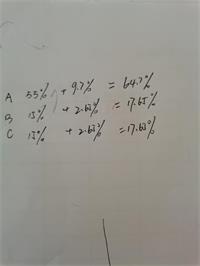 A 55% + 9.7% = 64.7%
B 15% + 2.65% = 17.65%
C 15% + 2.65% = 17.65%